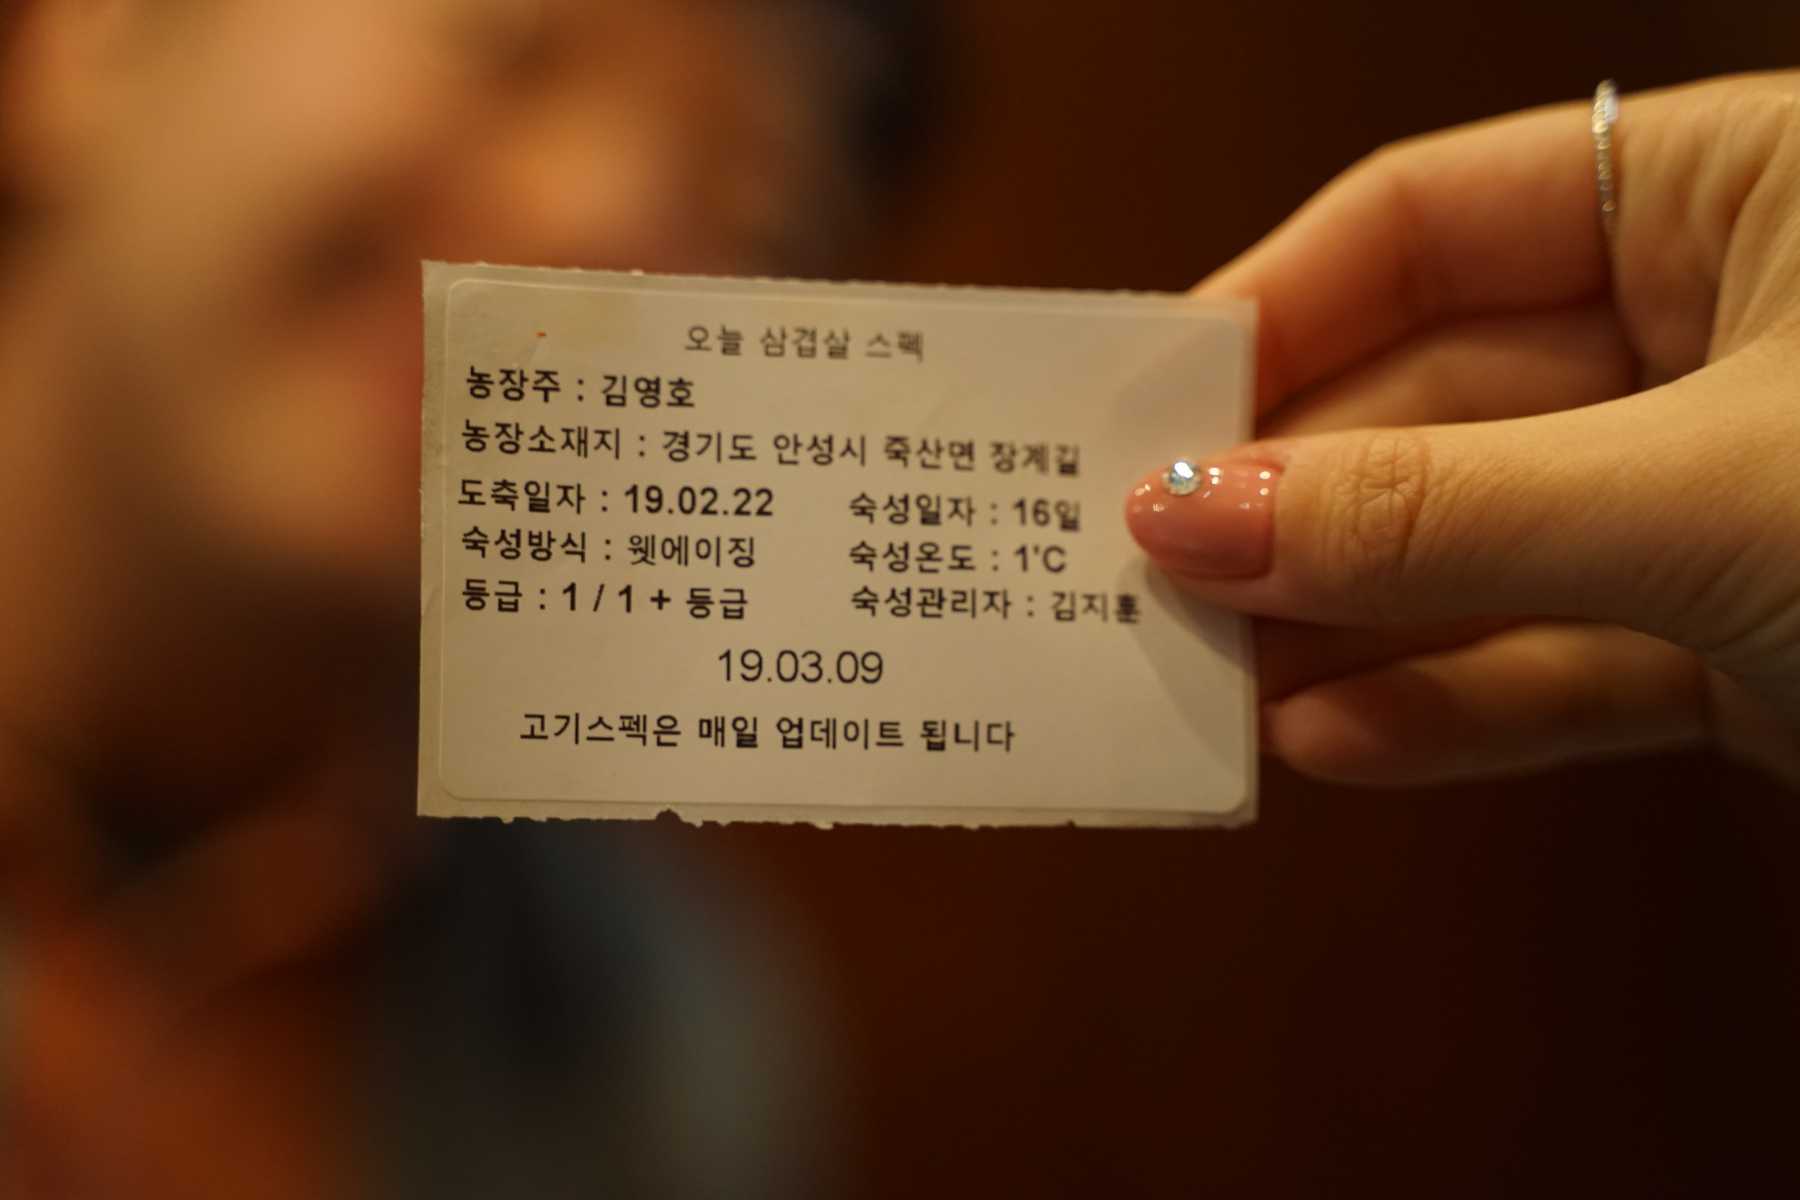 오늘 삼겹살 스펙
농장주 : 김영호
농장소재지 : 경기도 안성시 죽산면 장계길
도축일자 : 19.02.22 숙성일자 : 16일
숙성방식 : 웻에이징 숙성온도 : 1'C
등급 : 1 / 1 + 등급 숙성관리자 : 김지훈
19.03.09
고기스펙은 매일 업데이트 됩니다